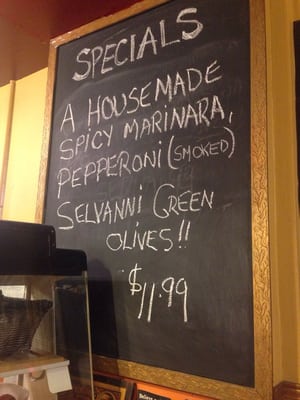 SPECIALS
A HOUSEMADE
SPICY MARINARA,
PEPPERONI (SMOKED)
SELVANNI GREEN
OLIVES!!
$11.99